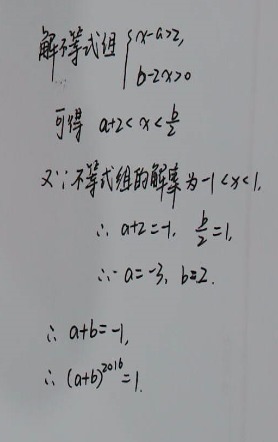 解不等式组 { x-a>2,
b-2x>0
可得 a+2<x<b/2
又∵不等式组的解集为-1<x<1,
∴ a+2=-1, b/2=1,
∴ a=-3, b=2.
∴ a+b=-1,
∴ (a+b)^2016=1.